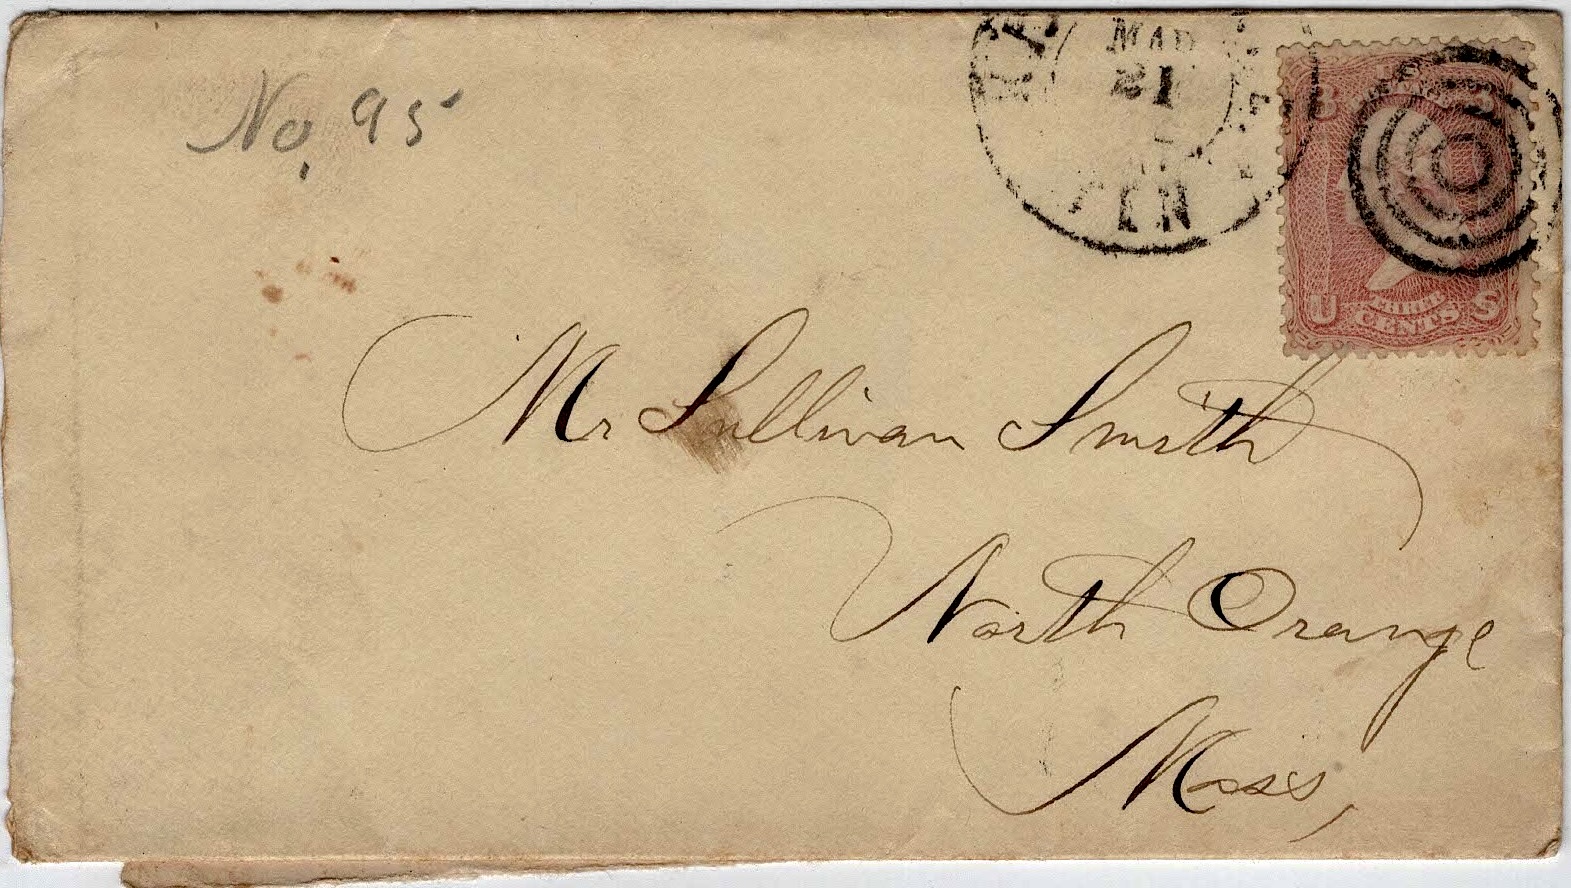 No. 95
MAR
21
3 3
U S
THREE
CENTS
Mr Sullivan Smith
North Orange
Mass,